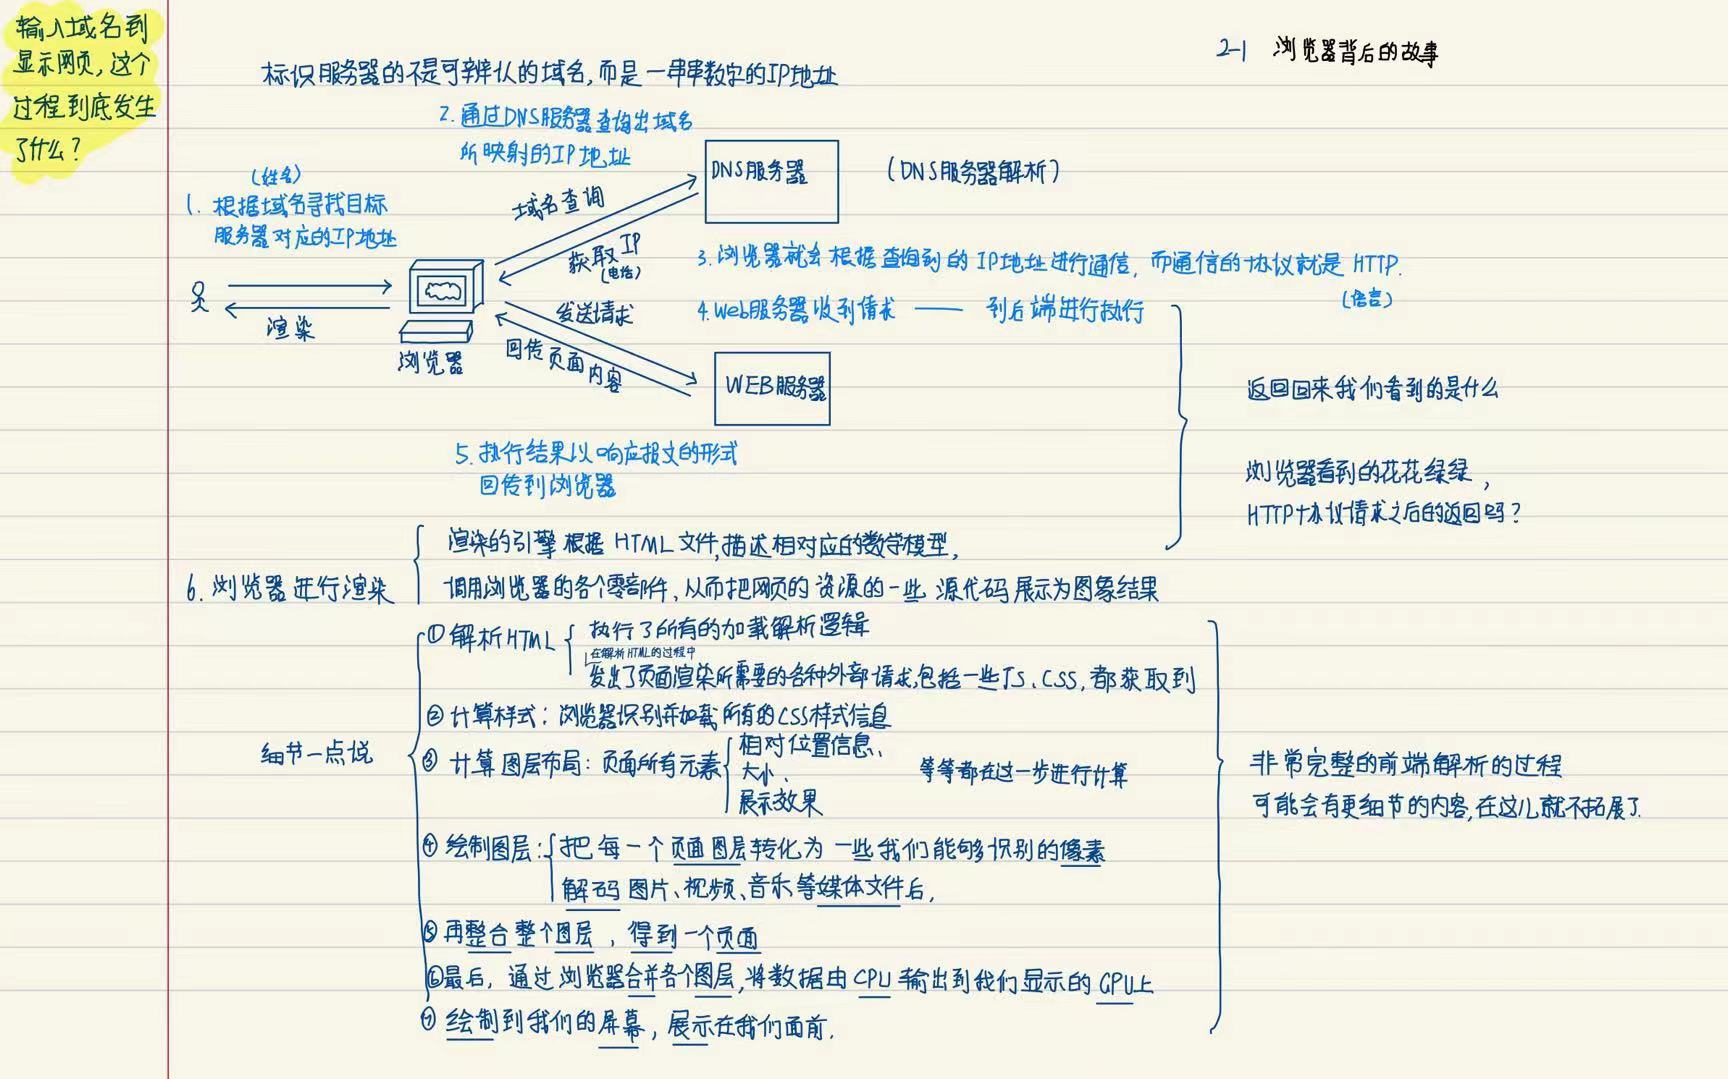 输入域名到
显示网页，这个
过程到底发生
了什么？
2-1 浏览器背后的故事
标识服务器的不是可辨认的域名，而是一串串数字的IP地址
2. 通过DNS服务器查询出域名
所映射的IP地址
(姓名)
1. 根据域名寻找目标
服务器对应的IP地址
域名查询
DNS服务器
(DNS服务器解析)
获取IP
(电话)
3. 浏览器就会根据查询到的IP地址进行通信，而通信的协议就是HTTP.
(语言)
渲染
浏览器
发送请求
回传页面内容
4. Web服务器收到请求 —— 到后端进行执行
WEB服务器
返回回来我们看到的是什么
5. 执行结果以响应报文的形式
回传到浏览器
浏览器看到的花花绿绿，
HTTP协议请求之后的返回吗？
6. 浏览器进行渲染
渲染的引擎根据HTML文件，描述相对应的数学模型，
调用浏览器的各个零部件，从而把网页的资源的一些源代码展示为图象结果
细节一点说
① 解析HTML
执行了所有的加载解析逻辑
在解析HTML的过程中
发出了页面渲染所需要的各种外部请求，包括一些JS、CSS，都获取到
② 计算样式：浏览器识别并加载所有的CSS样式信息
③ 计算图层布局：页面所有元素
相对位置信息、
大小、
展示效果
等等都在这一步进行计算
非常完整的前端解析的过程
可能会有更细节的内容，在这儿就不拓展了.
④ 绘制图层：把每一个页面图层转化为一些我们能够识别的像素
解码图片、视频、音乐等媒体文件后，
⑤ 再整合整个图层，得到一个页面
⑥ 最后，通过浏览器合并各个图层，将数据由CPU输出到我们显示的GPU上
⑦ 绘制到我们的屏幕，展示在我们面前.